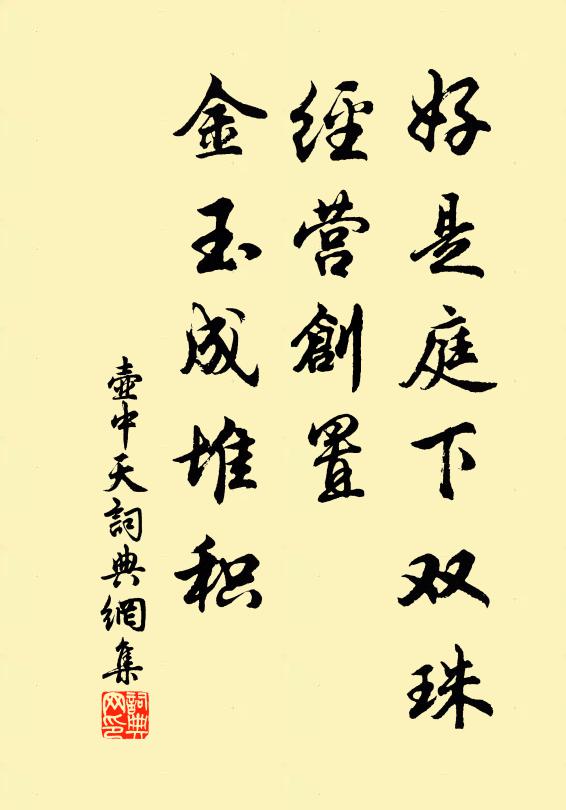 好是庭下双珠
經营創置
金玉成堆积
壷中天詞典網集
詞典网印